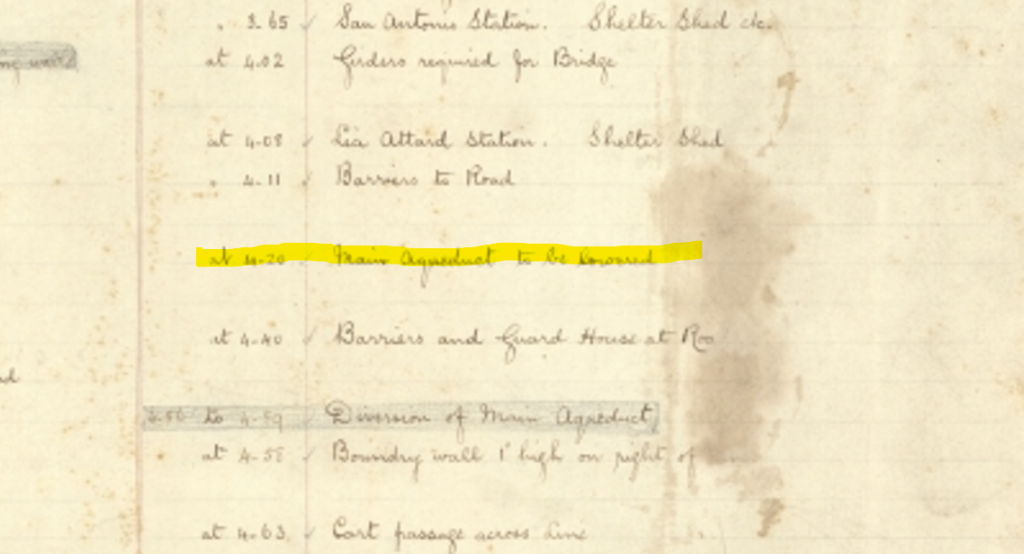 . 3.65 San Antonio Station. Shelter Shed etc.
at 4.02 Girders required for Bridge
at 4.08 Lia Attard Station. Shelter Shed
. 4.11 Barriers to Road
at 4.20 Main Aqueduct to be
at 4.40 Barriers and Guard House at
to 4.59 Diversion of Main Aqueduct
at 4.58 Boundry wall 1' high on right of
at 4.63 Cart passage across line